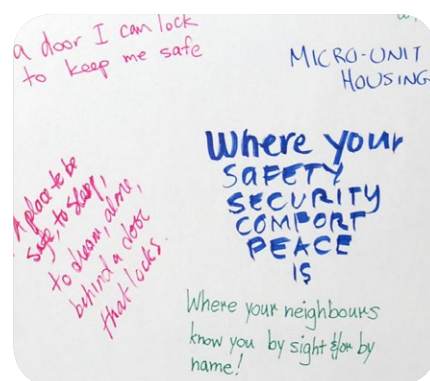 a door I can lock
to keep me safe
MICRO-UNIT
HOUSING
Where your
SAFETY
SECURITY
COMFORT
PEACE
IS
A place to be
safe, to sleep,
to dream, alone,
behind a door
that locks.
Where your neighbours
know you by sight &/or by
name!